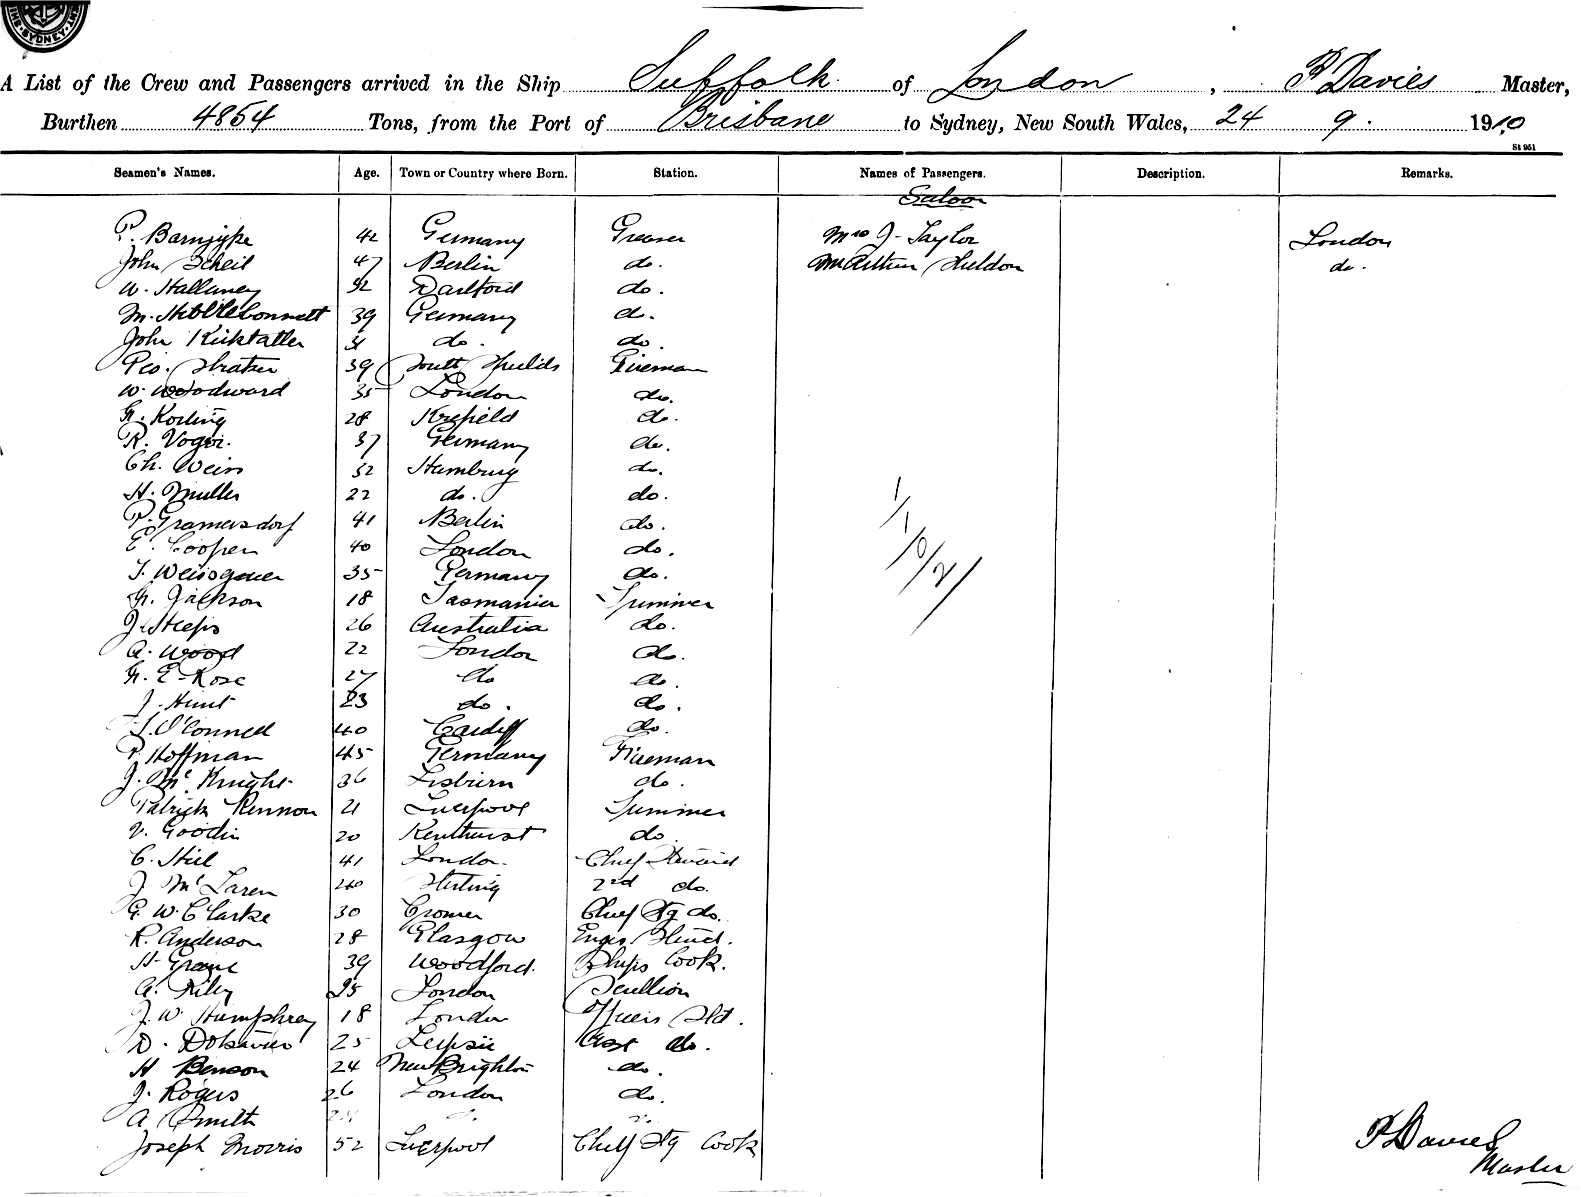 SYDNEY
A List of the Crew and Passengers arrived in the Ship Suffolk of London, P Davies Master,
Burthen 4854 Tons, from the Port of Brisbane to Sydney, New South Wales, 24 9. 1910
St 951
Seamen's Names. Age. Town or Country where Born. Station. Names of Passengers. Description. Remarks.
Saloon
P. 42 Germany Greaser Mrs J. Taylor London
John Scheil 47 Berlin do. Mr Arthur Sheldon do.
W. Hallaney 32 Dartford do.
M. 39 Germany do.
John 31 do. do.
Geo. Straker 39 South Shields Fireman
W. Woodward 35 London do.
H. Korting 28 Krefield do.
R. Voger. 37 Germany do.
Ch. Weiss 32 Hamburg do.
H. Muller 22 do. do.
P. Gramersdorf 41 Berlin do.
E. Cooper 40 London do.
35 Germany do.
H. Jackson 18 Tasmania Trimmer
J. 26 Australia do.
A. Wood 22 London do.
H. E. Rose 27 do do.
J. Hunt 23 do. do.
T. O'Connell 40 Cardiff do.
P. Hoffman 45 Germany Fireman
J. McKnight 36 Lisburn do.
Patrick Rennon 21 Liverpool Trimmer
V. Goodin 20 Kenthurst do.
C. Hill 41 London. Chief Steward
J. McLaren 20 2nd do.
G. W. Clarke 30 Cromer Chief Stg do.
R. Anderson 28 Glasgow Engrs Stwd.
H. 39 Woodford. Ships Cook.
A. Riley 25 London Scullion
J. W. Humphrey 18 London Officers Std.
D. 25 Leipsic Asst do.
H Benson 24 New Brighton do.
J. Rogers 26 London do.
A Smith
Joseph Morris 52 Liverpool Chief Stg Cook
1/10/21
P Davies
Master